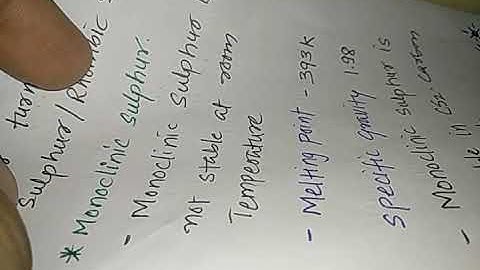 turn
Sulphur/Rhombic
* Monoclinic Sulphur.
- Monoclinic Sulphur
not stable at room
Temperature
- Melting point - 393K
specific gravity 1.98
- Monoclinic sulphur is
in CS2. carbon